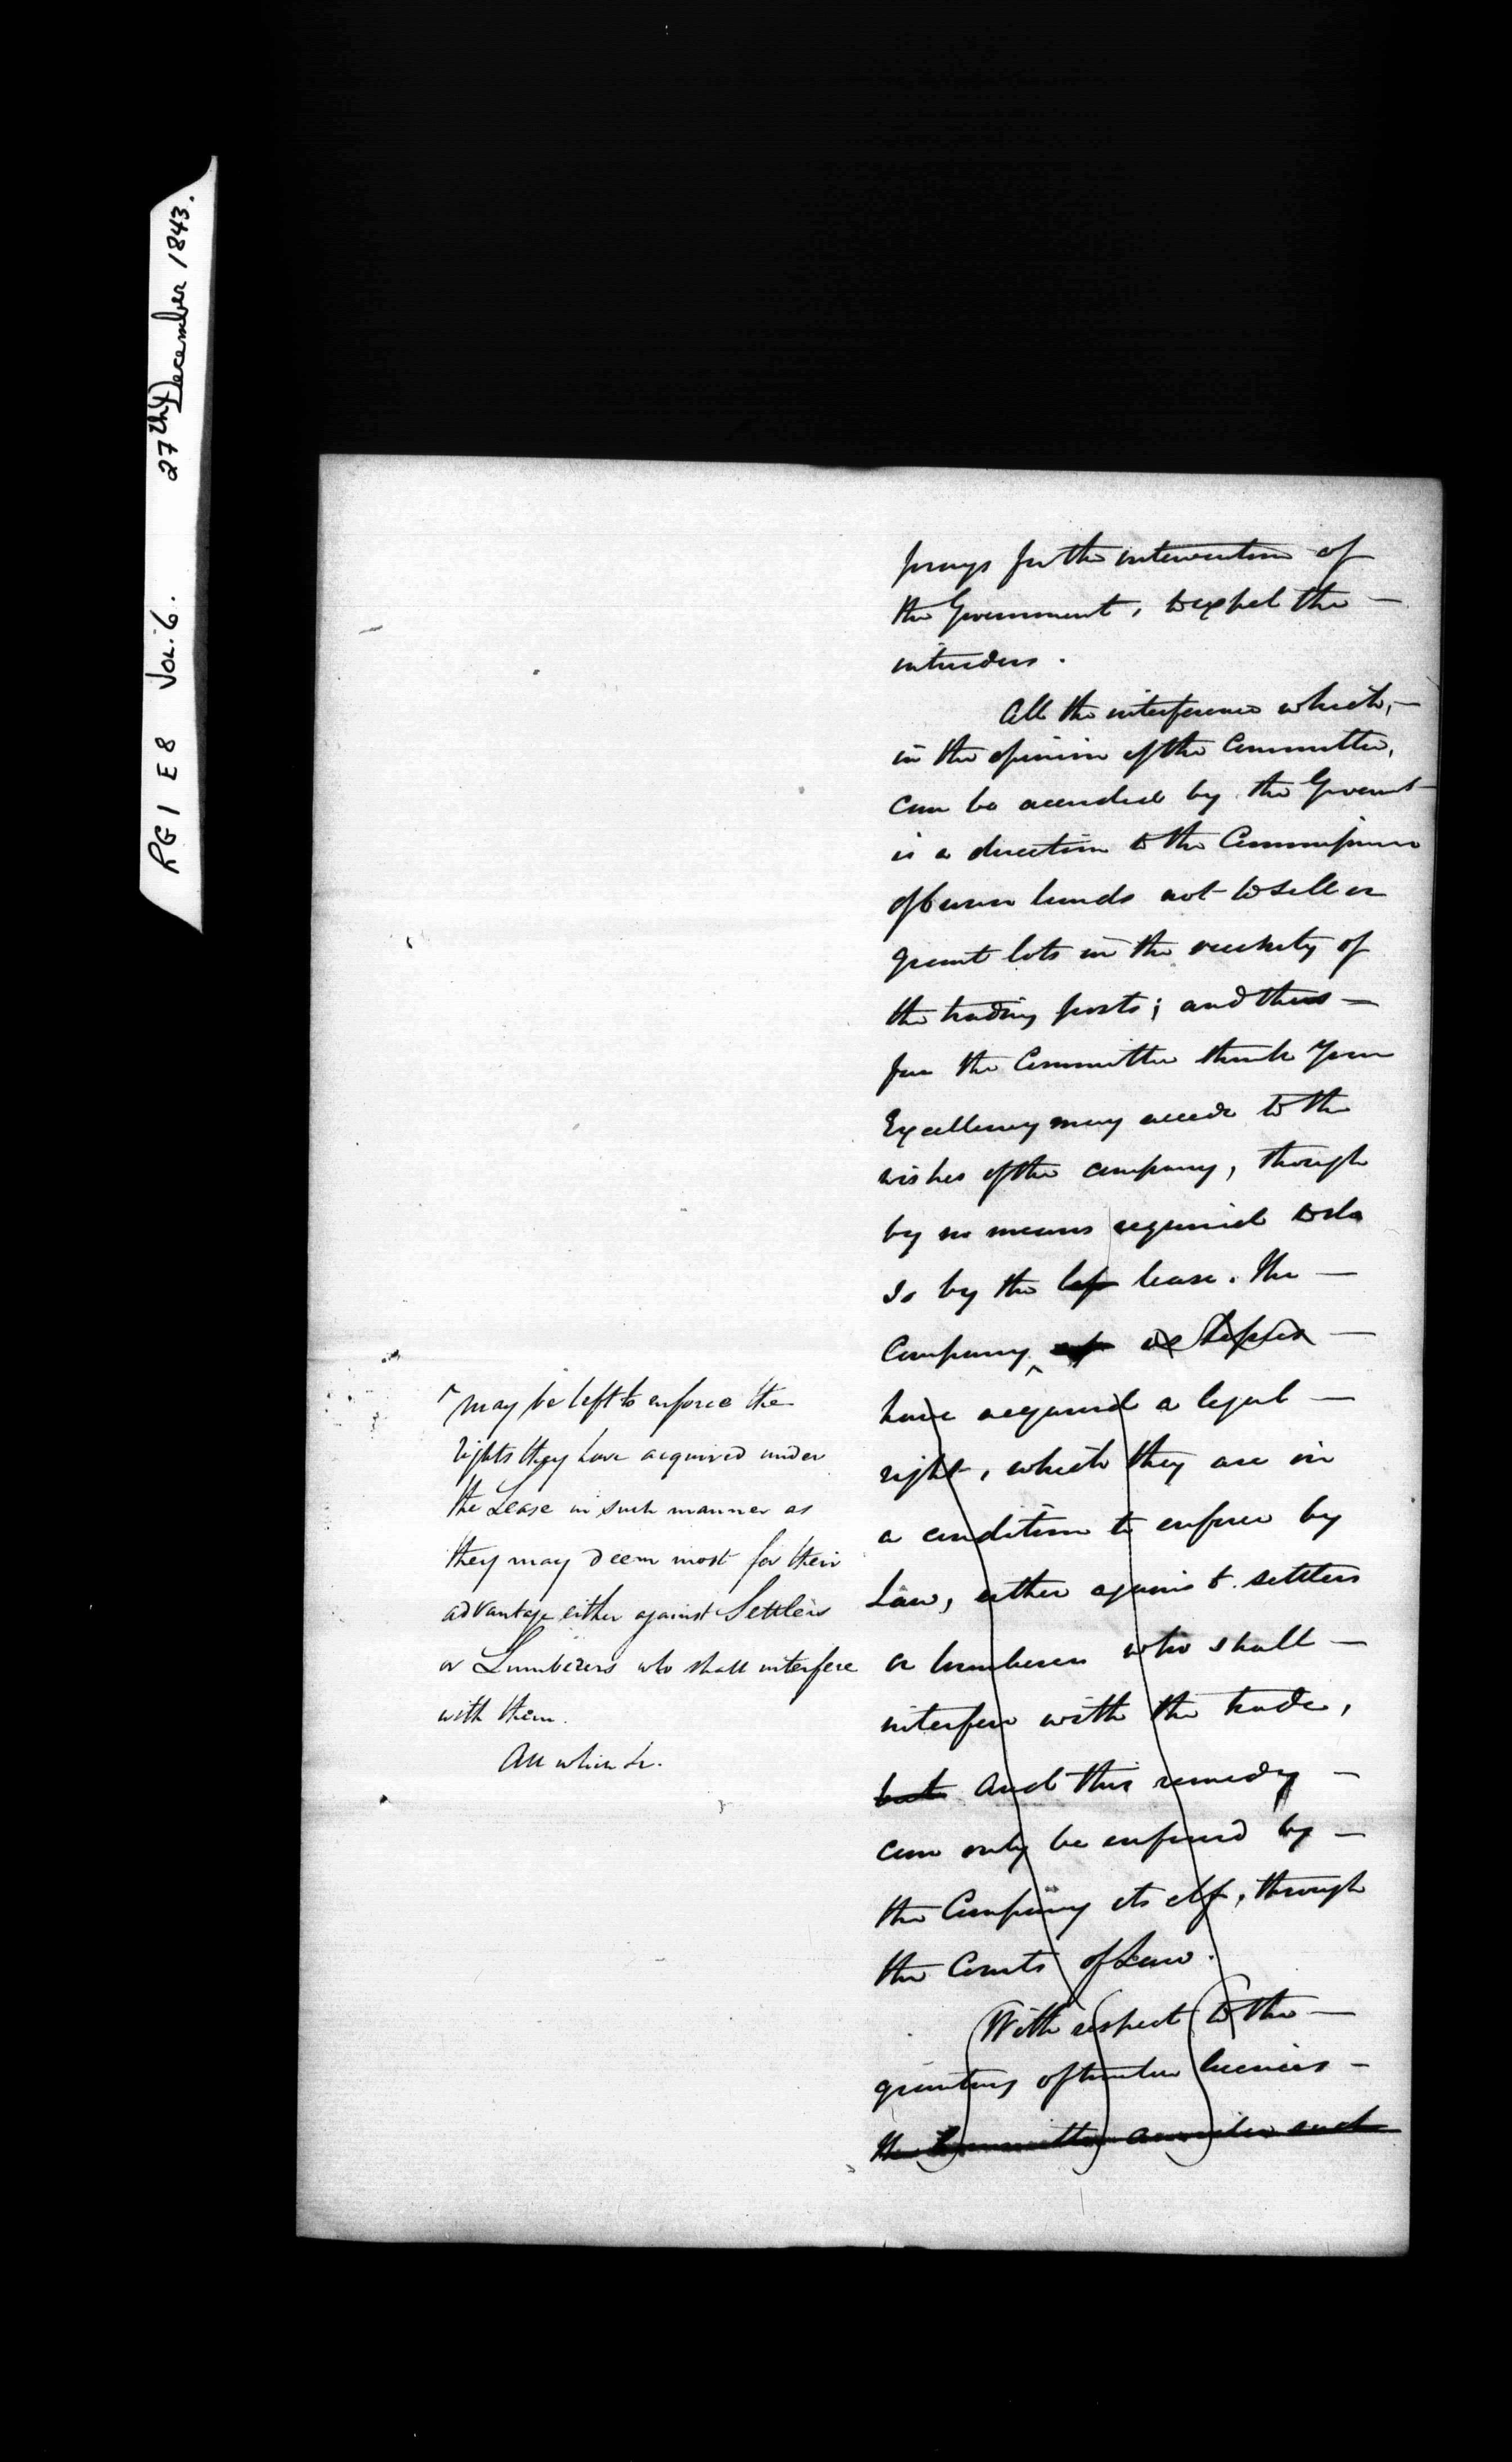 RG 1 E 8 Vol. 6. 27th December 1843.
prays for the intervention of
the Government, to expel the —
intruders.
All the interference which, —
in the opinion of the Committee,
can be accorded by the Governt
is a direction to the Commissioner
of Crown lands not to sell or
grant lots in the vicinity of
the trading posts; and thus —
far the Committee think Your
Excellency may accede to the
wishes of the company, though
by no means required to do
so by the lease. The —
Company
have acquired a legal —
right, which they are in
a condition to enforce by
Law, either against settlers
or lumberers who shall —
interfere with the trade,
but and this remedy —
can only be enforced by —
the Company itself, through
the Courts of Law.
With respect to the —
granting of timber licences —
the Committee consider such
^ may be left to enforce the
rights they have acquired under
the Lease in such manner as
they may deem most for their
advantage either against Settlers
or Lumberers who shall interfere
with them.
All which &c.